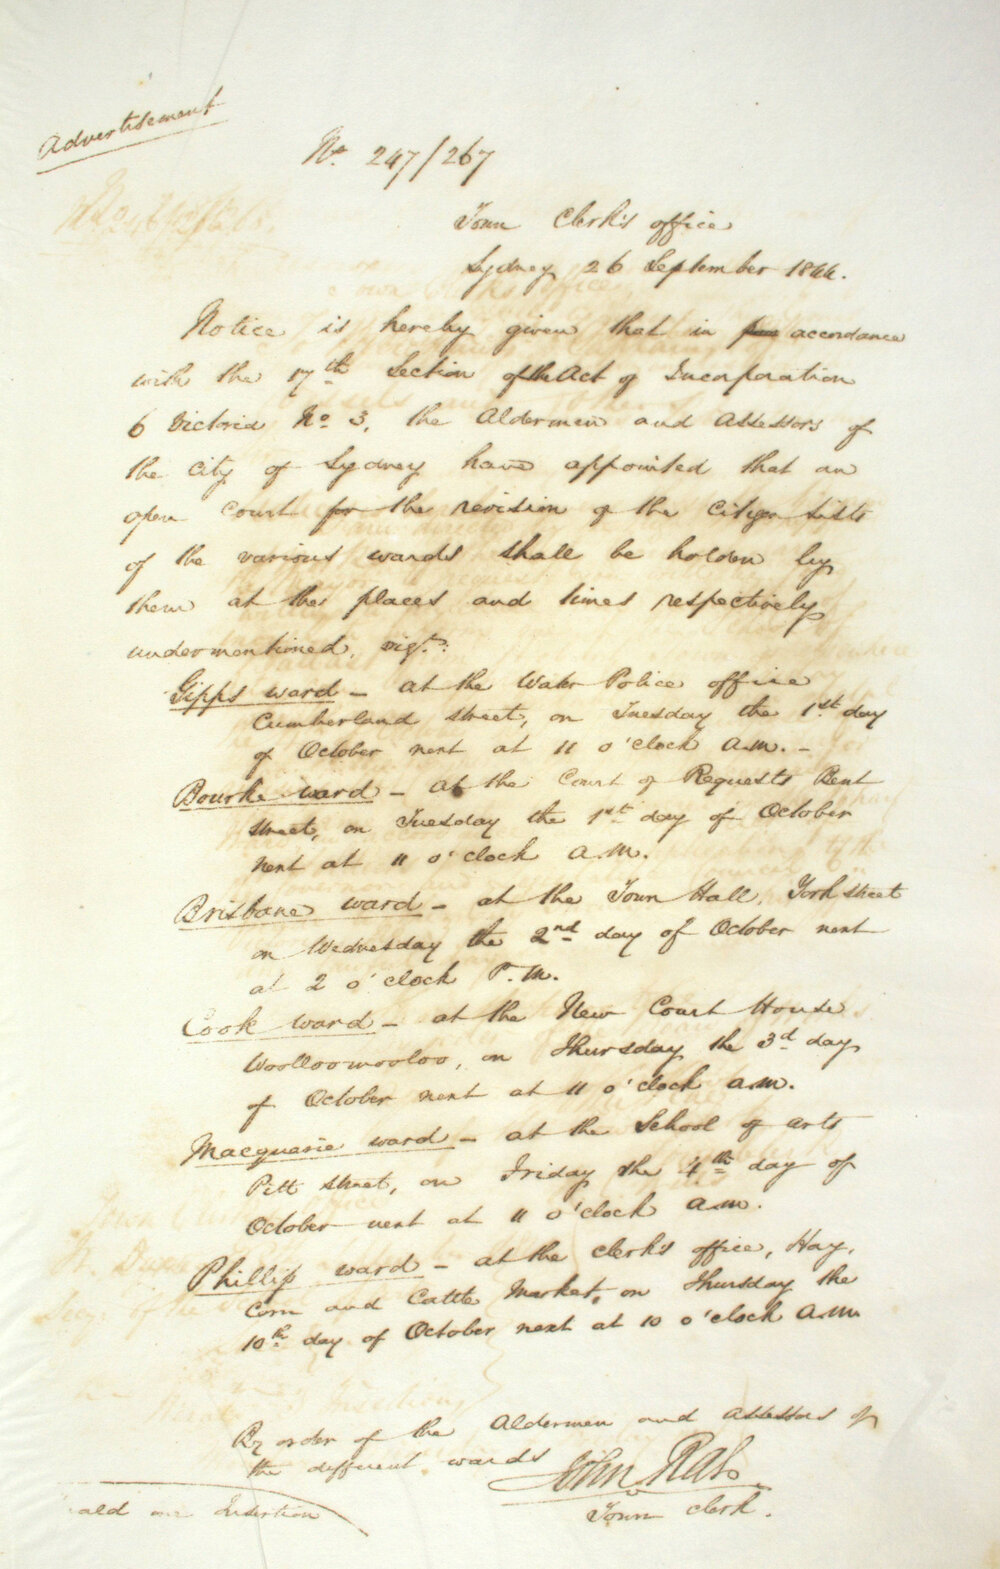 Advertisement
No. 247/267
Town Clerk's office
Sydney 26 September 1844.
Notice is hereby given that in accordance
with the 17th Section of the Act of Incorporation
6 Victoria No. 3, the Aldermen and Assessors of
the City of Sydney have appointed that an
open Court for the revision of the Citizen Lists
of the various wards shall be holden by
them at the places and times respectively
undermentioned, vizt.:
Gipps ward - at the Water Police office
Cumberland street, on Tuesday the 1st. day
of October next at 11 o'clock A.M. -
Bourke ward - at the Court of Requests Bent
street, on Tuesday the 1st day of October
next at 11 o'clock A.M.
Brisbane ward - at the Town Hall, York street
on Wednesday the 2nd day of October next
at 2 o'clock P.M.
Cook ward - at the New Court House
Woolloomooloo, on Thursday the 3d day
of October next at 11 o'clock A.M.
Macquarie ward - at the School of arts
Pitt street, on Friday the 4th day of
October next at 11 o'clock A.M.
Phillip ward - at the Clerk's office, Hay,
Corn and Cattle Market, on Thursday the
10th day of October next at 10 o'clock A.M
By order of the Aldermen and Assessors of
the different wards
John Rae
Town Clerk.
ald one Insertion